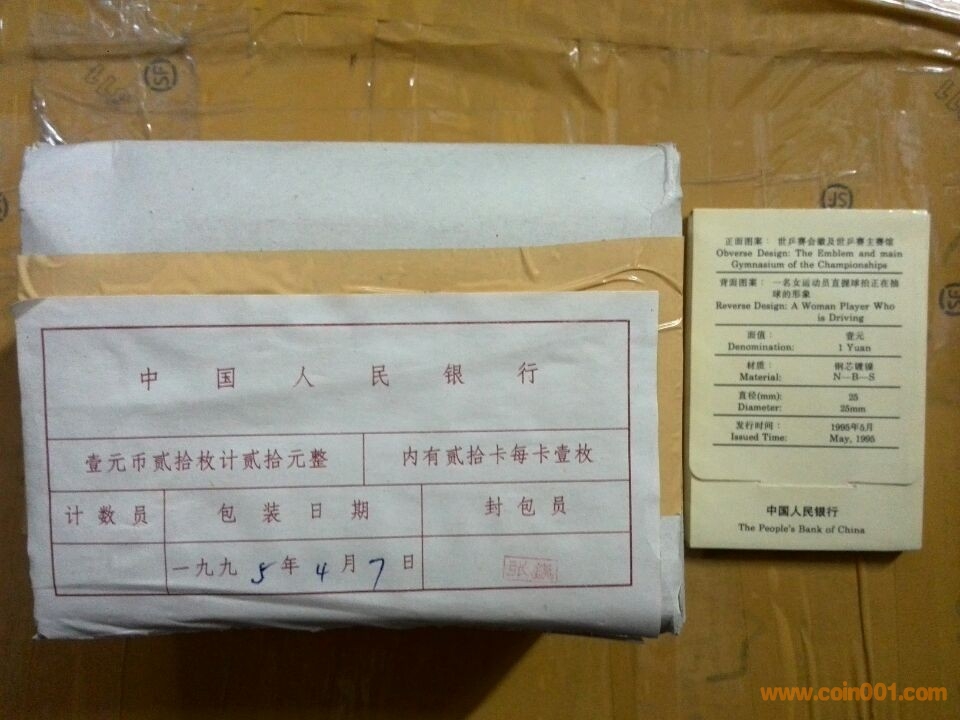 中国人民银行
壹元币贰拾枚计贰拾元整
内有贰拾卡每卡壹枚
计数员
包装日期
封包员
一九九5年4月7日
正面图案: 世乒赛会徽及世乒赛主赛馆
Obverse Design: The Emblem and main
Gymnasium of the Championships
背面图案: 一名女运动员直握球拍正在抽
球的形象
Reverse Design: A Woman Player Who
is Driving
面值: 壹元
Denomination: 1 Yuan
材质: 钢芯镀镍
Material: N—B—S
直径(mm): 25
Diameter: 25mm
发行时间: 1995年5月
Issued Time: May, 1995
中国人民银行
The People's Bank of China
www.coin001.com